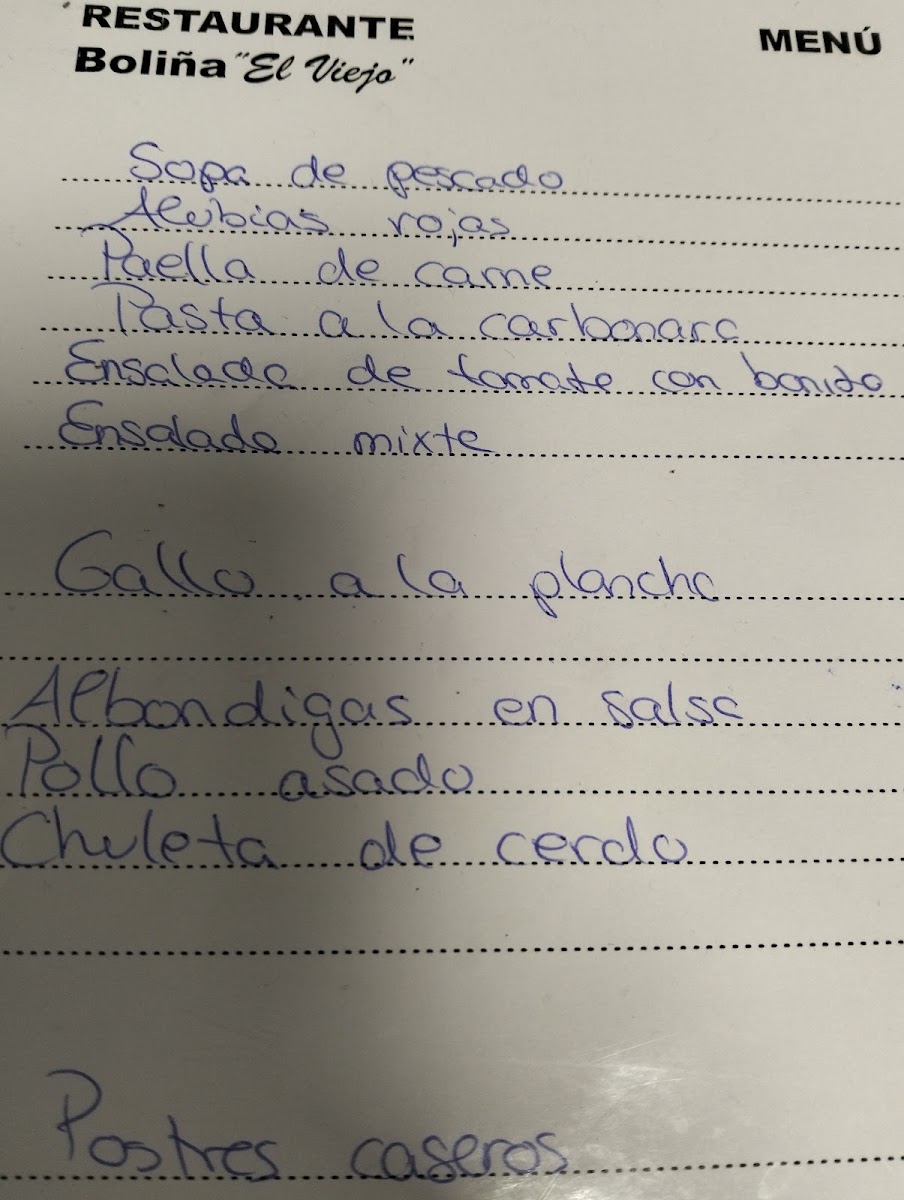 RESTAURANTE
MENÚ
Boliña "El Viejo"
Sopa de pescado
Alubias rojas
Paella de carne
Pasta a la carbonara
Ensalada de tomate con bonito
Ensalada mixta
Gallo a la plancha
Albondigas en salsa
Pollo asado
Chuleta de cerdo
Postres caseros